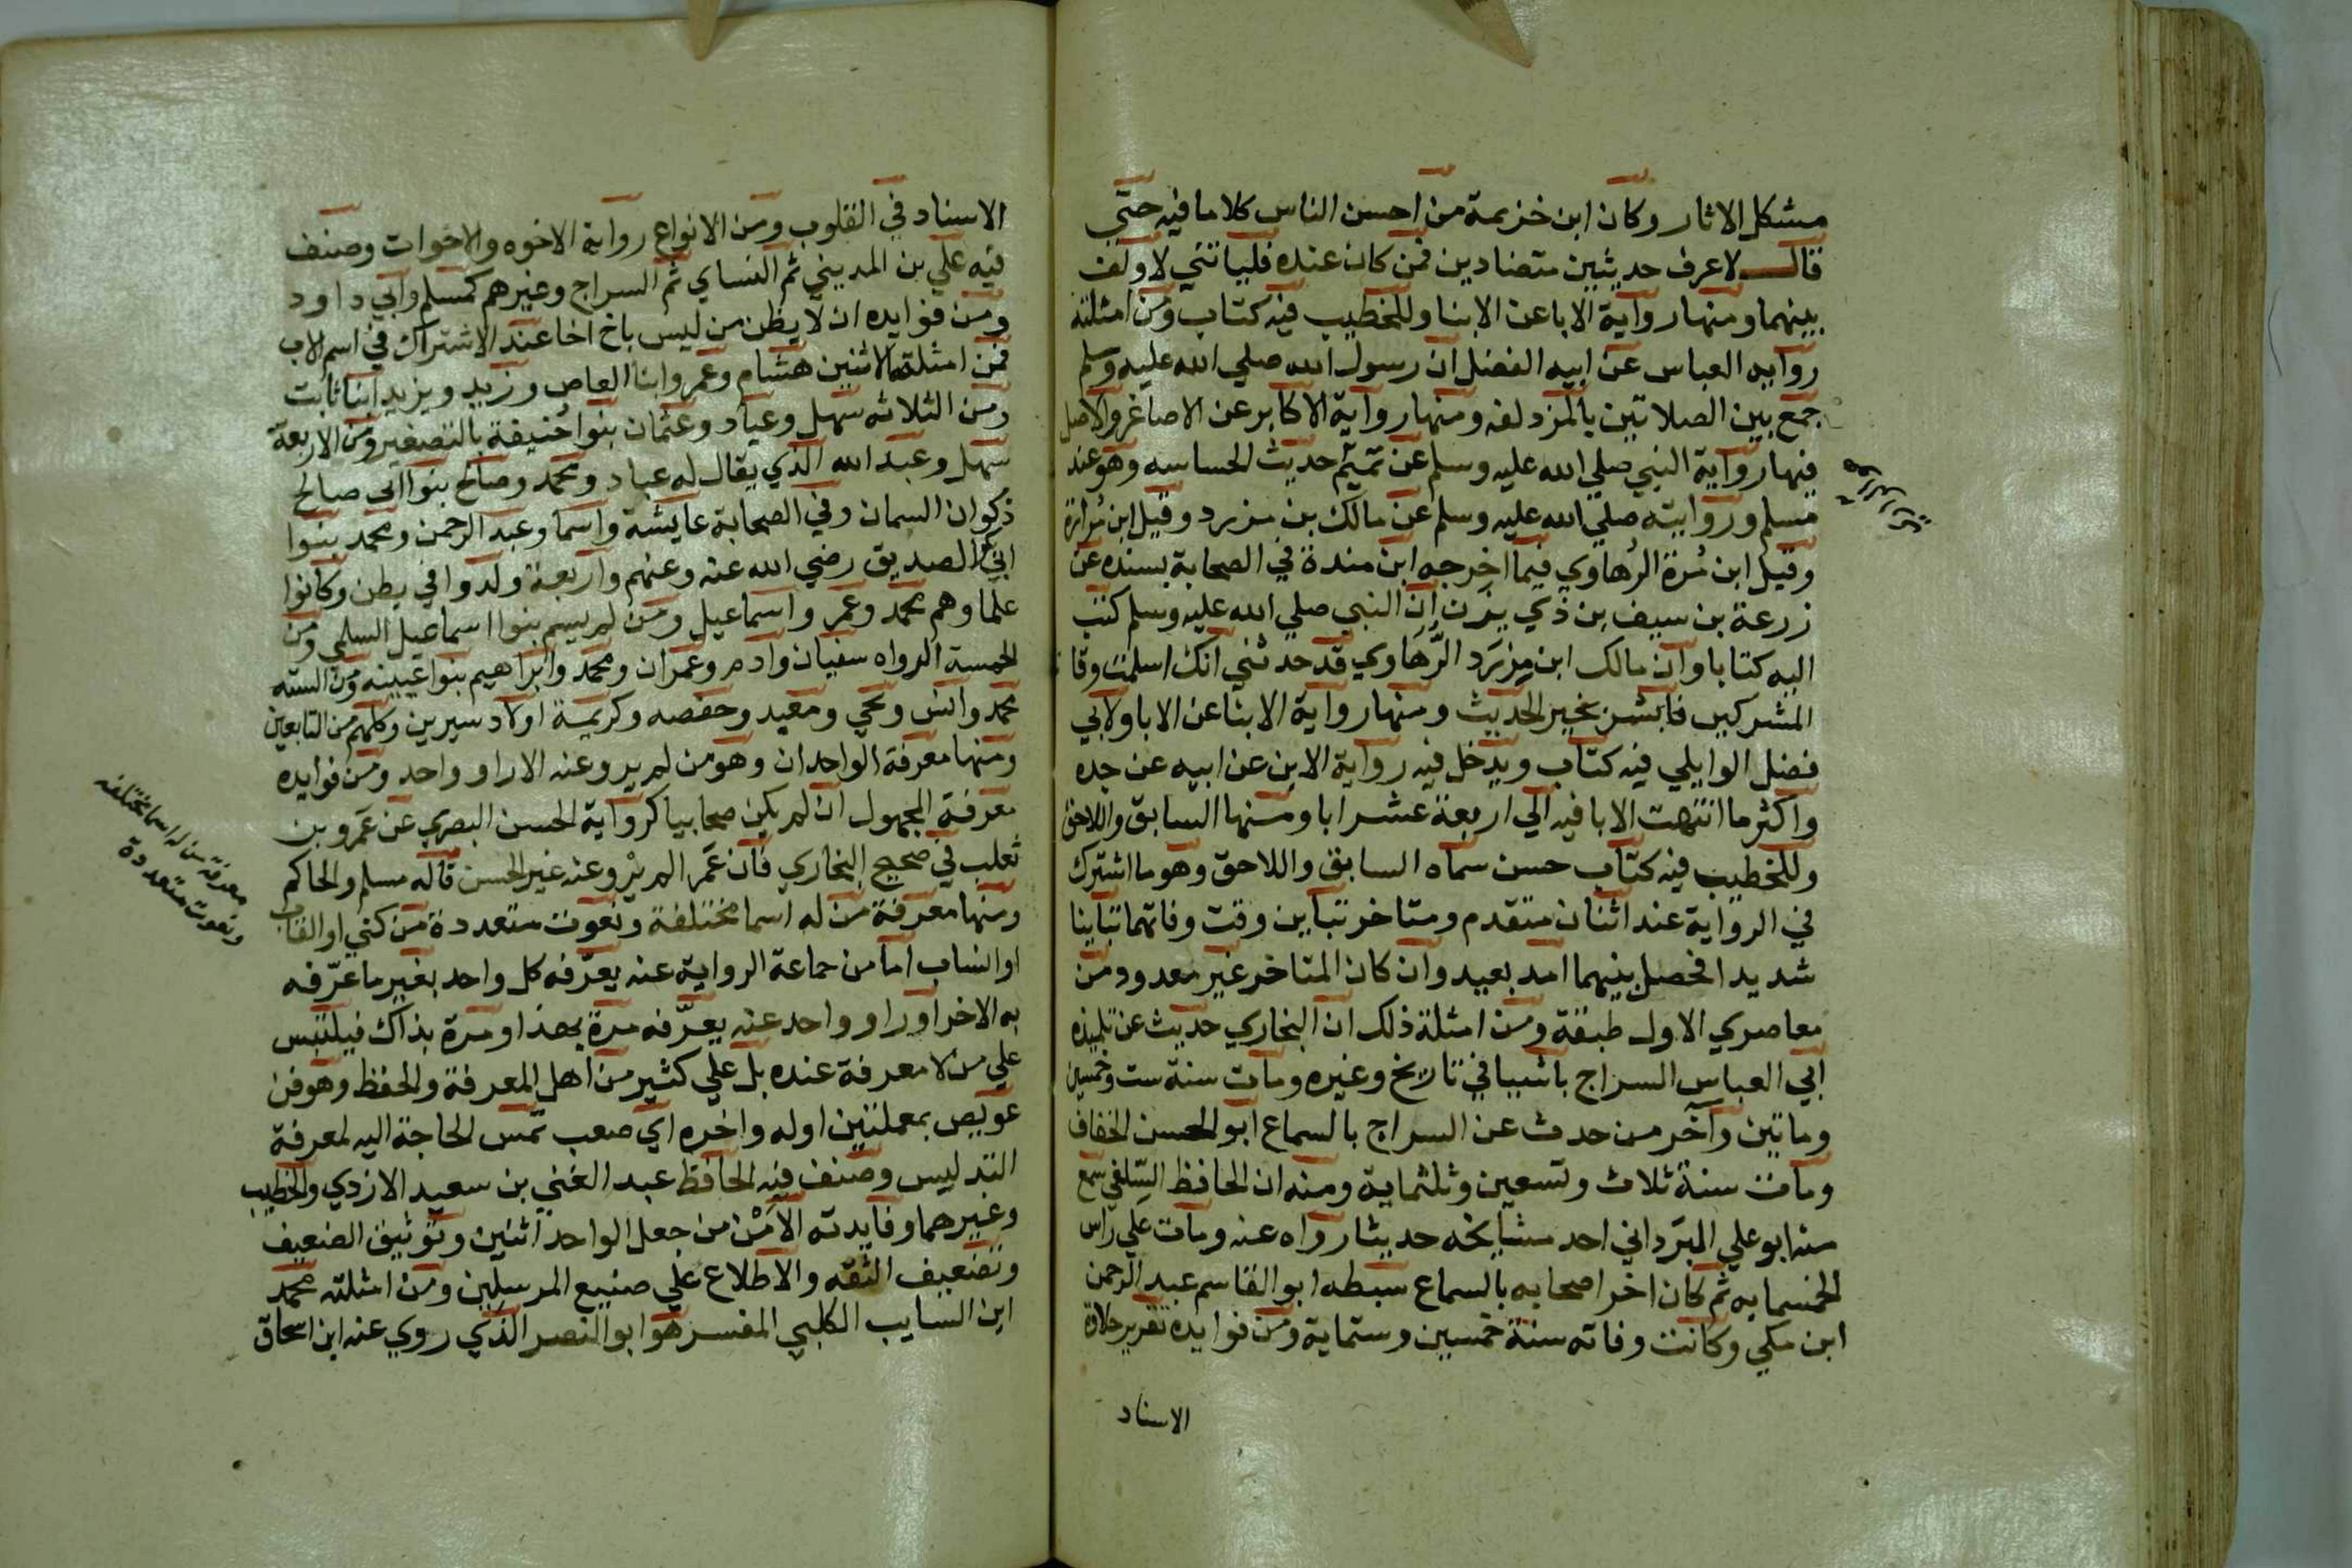 مشكل الاثار وكان ابن خزيمة من احسن الناس كلاما فيه حتي
قال لاعرف حديثين متضادين فمن كان عنده فلياتني لاولف
بينهما ومنها رواية الاباعن الابنا وللخطيب فيه كتاب ومن امثلته
روايه العباس عن ابيه الفضل ان رسول الله صلي الله عليه وسلم
جمع بين الصلاتين بالمزدلفه ومنها رواية الاكابر عن الاصاغر والاصل
فيها رواية النبي صلي الله عليه وسلم عن تميم حديث الجساسه وهو عند
مسلم وروايته صلي الله عليه وسلم عن مالك بن مزرد وقيل ابن مُرارة
وقيل ابن مُرة الرُهاوي فيما اخرجه ابن مندة في الصحابة بسنده عن
زرعة بن سيف بن ذي يزن ان النبي صلي الله عليه وسلم كتب
اليه كتابا وان مالك ابن مِزرَد الرَّهَاوي قد حدثني انك اسلمت وقا
المشركين فابشر بخير الحديث ومنها رواية الابنا عن الابا ولابي
فضل الوايلي فيه كتاب ويدخل فيه رواية الابن عن ابيه عن جده
واكثر ما انتهت الابا فيه الي اربعة عشر ابا ومنها السابق واللاحق
وللخطيب فيه كتاب حسن سماه السابق واللاحق وهو ما اشترك
في الرواية عند اثنان متقدم ومتاخر تباين وقت وفاتهما تباينا
شديدا فحصل بينهما امد بعيد وان كان المتاخر غير معدود من
معاصري الاول طبقة ومن امثلة ذلك ان البخاري حديث عن تلميذه
ابي العباس السراج باشيا في تاريخ وغيره ومات سنة ست وخمسين
وماتين وآخر من حدث عن السراج بالسماع ابو الحسن الخفاف
ومات سنة ثلاث وتسعين وثلثماية ومنه ان الحافظ السِّلفي سمع
منه ابو علي البَرَداني احد مشايخه حديثا رواه عنه ومات علي راس
الخمسمايه ثم كان اخر اصحابه بالسماع سبطه ابو القاسم عبد الرحمن
ابن مكي وكانت وفاته سنة خمسين وستماية ومن فوايده تقرير حلاوة
الاسناد
الاسناد في القلوب ومن الانواع رواية الاخوه والاخوات وصنف
فيه علي بن المديني ثم النساي ثم السراج وغيرهم كمسلم وابي داود
ومن فوايده ان لا يظن من ليس باخ اخا عند الاشتراك في اسم الاب
فمن امثلة الاثنين هشام وعمرو ابنا العاص وزيد ويزيد ابنا ثابت
ومن الثلاثه سهل وعباد وعثمان بنوا حُنيفة بالتصغير ومن الاربعة
سهل وعبد الله الذي يقال له عباد ومحمد وصالح بنوا ابي صالح
ذكوان السمان وفي الصحابة عايشة واسما وعبد الرحمن ومحمد بنوا
ابي الصديق رضي الله عنه وعنهم واربعة ولدوا في بطن وكانوا
علما وهم محمد وعمر واسماعيل ومن لم يسم بنوا اسماعيل السلمي ومن
الخمسة الرواه سفيان وادم وعمران ومحمد وابراهيم بنوا عيينه ومن السته
محمد وانس ويحي ومعبد وحفصه وكريمة اولاد سيرين وكلهم من التابعين
ومنها معرفة الواحدان وهو من لم يرو عنه الا راو واحد ومن فوايده
معرفة المجهول ان لم يكن صحابيا كرواية الحسن البصري عن عَمرو بن
ثعلب في صحيح البخاري فان عَمَرا لم يرْو عنه غير الحسن قاله مسلم والحاكم
ومنها معرفة من له اسما مختلفة ونعوت متعددة من كني او القاب
او انساب اما من جماعة الرواية عنه يعرّفه كل واحد بغير ما عرّفه
به الاخر او راو واحد عنه يعرّفه مرة بهذا ومرة بذاك فيلتبس
علي من لا معرفة عنده بل علي كثير من اهل المعرفة والحفظ وهو فن
عويص بمهملتين اوله واخره اي صعب تمس الحاجة اليه لمعرفة
التدليس وصنف فيه الحافظ عبد الغني بن سعيد الازدي والخطيب
وغيرهما وفايدته الاَمْن من جعل الواحد اثنين وتوثيق الضعيف
وتضعيف الثقه والاطلاع علي صنيع المرسلين ومن امثلته محمد
ابن السايب الكلبي المفسر هو ابو النصر الذي روي عنه ابن اسحاق
معرفة من له اسما مختلفه
ونعوت متعددة